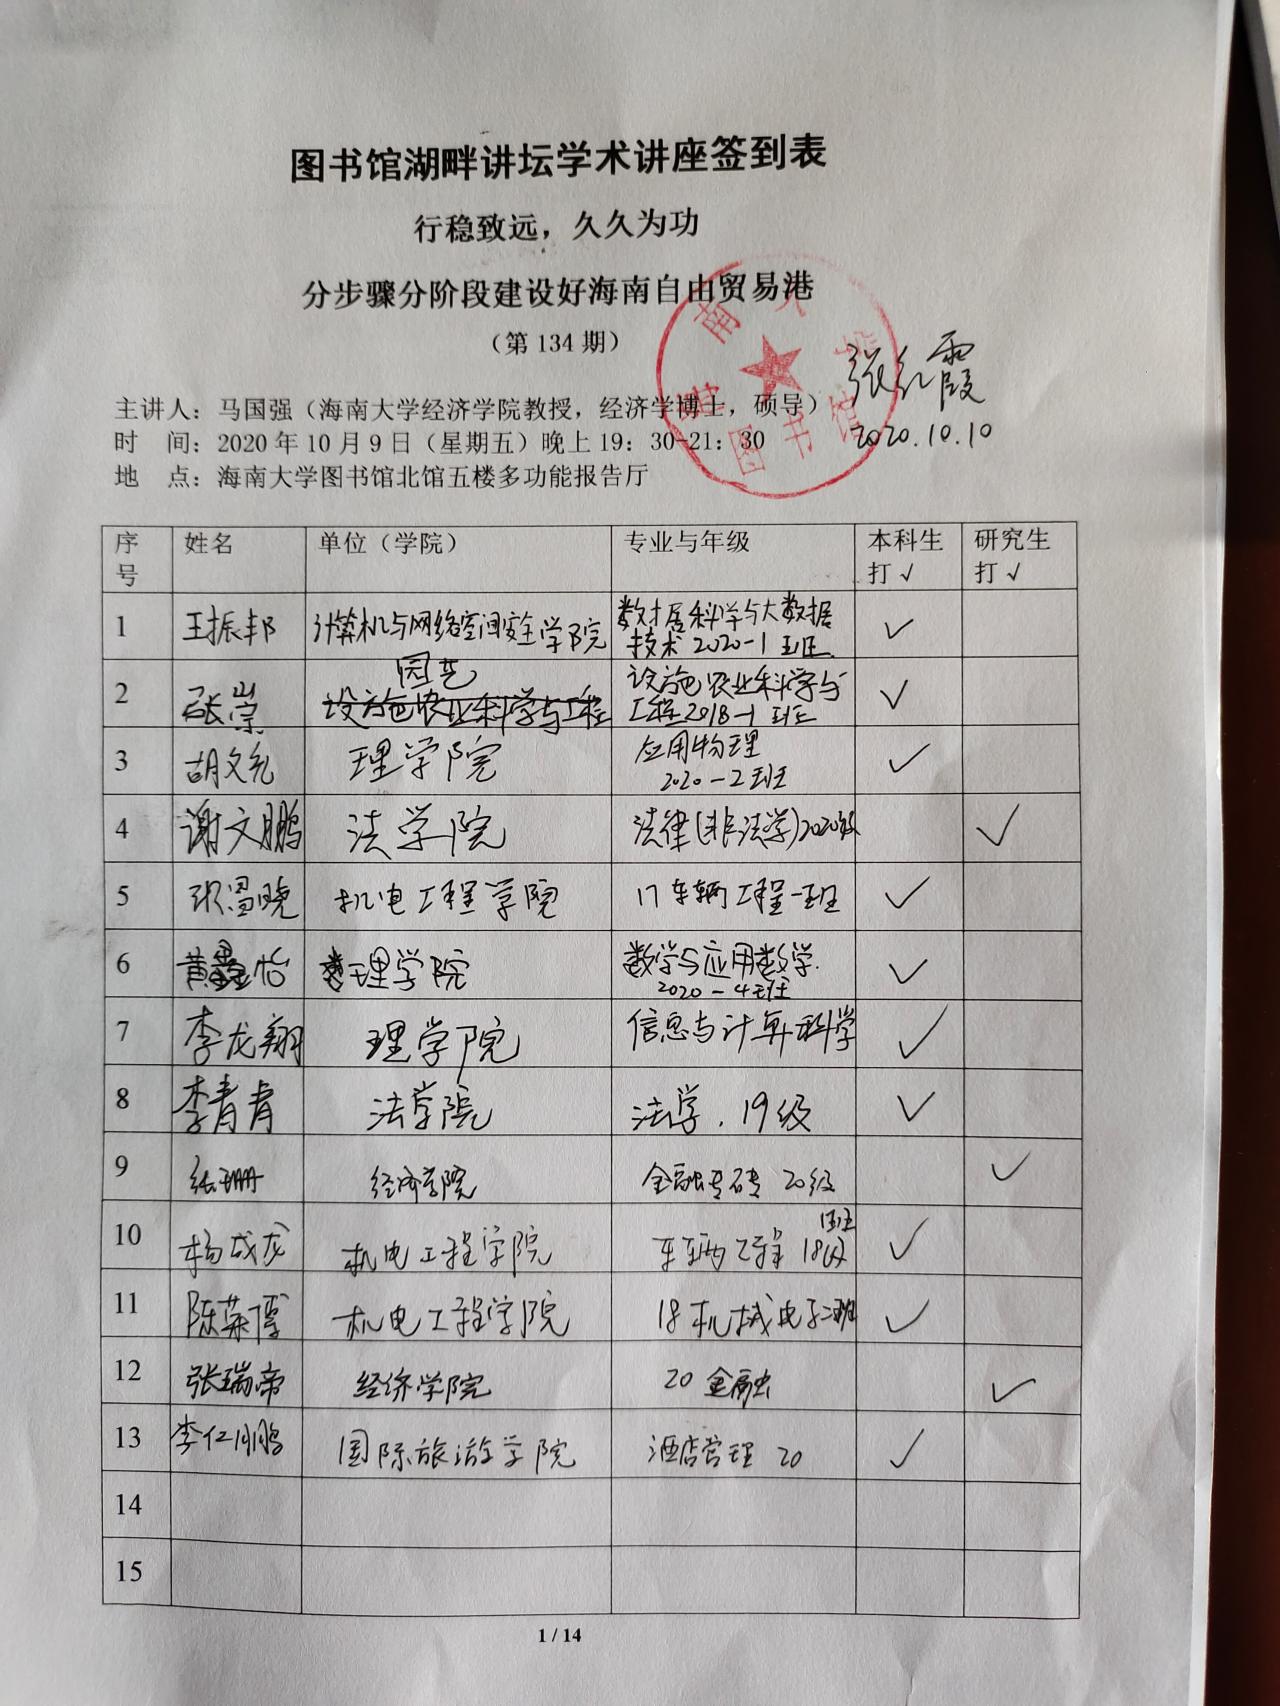 图书馆湖畔讲坛学术讲座签到表
行稳致远，久久为功
分步骤分阶段建设好海南自由贸易港
（第 134 期）
张红霞
2020.10.10
主讲人：马国强（海南大学经济学院教授，经济学博士，硕导）
时　间：2020 年 10 月 9 日（星期五）晚上 19：30-21：30
地　点：海南大学图书馆北馆五楼多功能报告厅
图书馆
序号 姓名 单位（学院） 专业与年级 本科生打√ 研究生打√
1 王振邦 计算机与网络空间安全学院 数据科学与大数据技术 2020-1 班 √
2 张崇 园艺 设施农业科学与工程 设施农业科学与工程2018-1班 √
3 理学院 应用物理 2020-2班 √
4 谢文鹏 法学院 法律(非法学)2020级 √
5 机电工程学院 17车辆工程一班 √
6 黄 怡 理学院 数学与应用数学 2020-4班 √
7 李龙翔 理学院 信息与计算科学 √
8 李青青 法学院 法学.19级 √
9 张珊 经济学院 金融专硕 20级 √
10 杨成龙 机电工程学院 车辆工程 18级 √
11 机电工程学院 18机械电子二班 √
12 张瑞帝 经济学院 20金融 √
13 李仁鹏 国际旅游学院 酒店管理 20 √
14
15
1 / 14